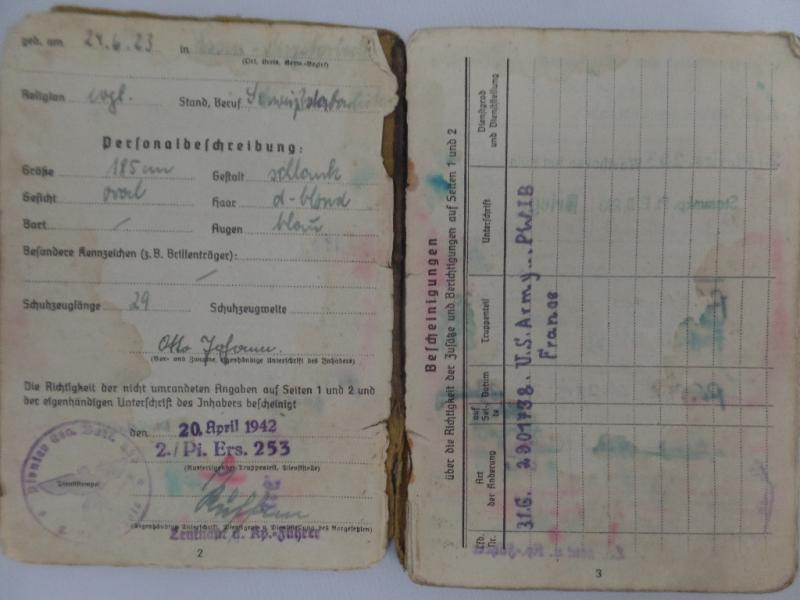 geb. am 24.6.23 in
(Ort, Kreis, Verw.-Bezirk)
Religion evgl. Stand, Beruf
Personalbeschreibung:
Größe 185 cm Gestalt schlank
Gesicht oval Haar d-blond
Bart / Augen blau
Besondere Kennzeichen (z.B. Brillenträger):
/
Schuhzeuglänge 29 Schuhzeugweite
Otto
(Vor- und Zuname, eigenhändige Unterschrift des Inhabers)
Die Richtigkeit der nicht umrandeten Angaben auf Seiten 1 und 2 und
der eigenhändigen Unterschrift des Inhabers bescheinigt
den 20. April 1942
2./Pi. Ers. 253
(Ausfertigender Truppenteil, Dienststelle)
Dienststempel
(Eigenhändige Unterschrift, Dienstgrad u. Dienststellung des Vorgesetzten)
Leutnant u. Kp.-Führer
2
Bescheinigungen
über die Richtigkeit der Zusätze und Berichtigungen auf Seiten 1 und 2
Lfd. Nr.
Art der Änderung
auf Seite
Datum
Truppenteil
Unterschrift
Dienstgrad und Dienststellung
31G. 2901738. U.S. Army... PWIB
France
3